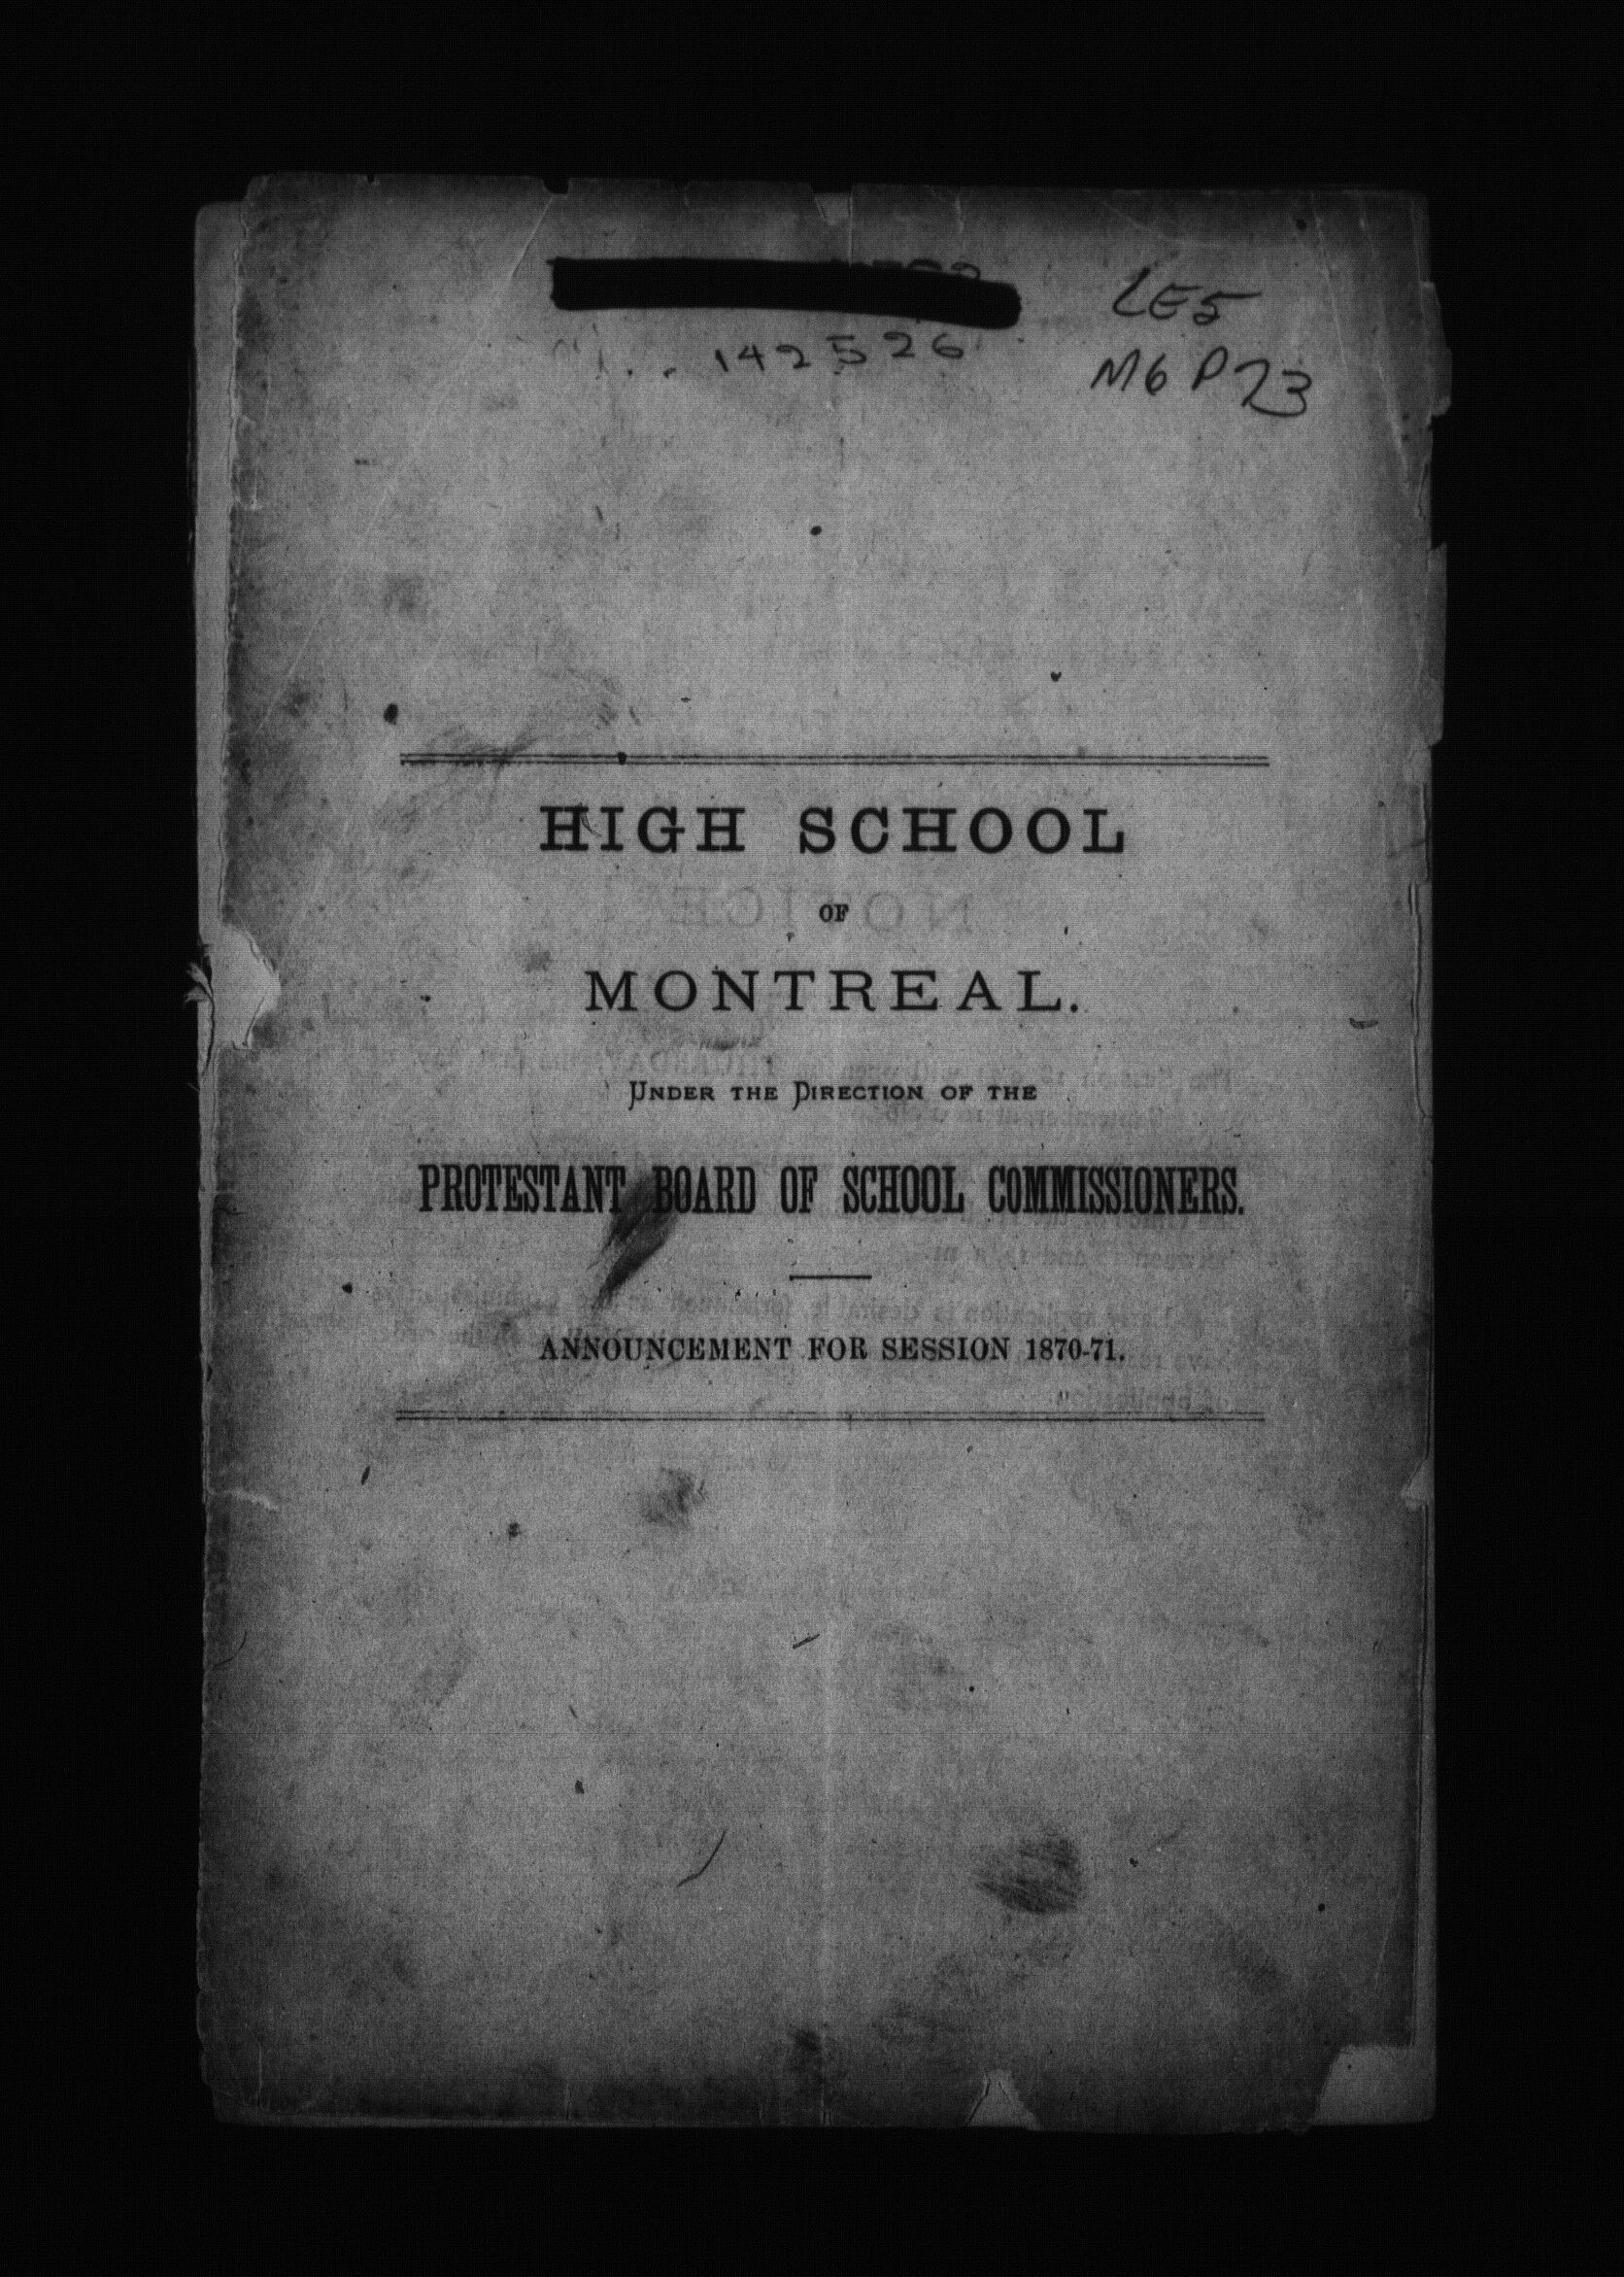 LE5
142526
M6 P23
HIGH SCHOOL
OF
MONTREAL.
UNDER THE DIRECTION OF THE
PROTESTANT BOARD OF SCHOOL COMMISSIONERS.
ANNOUNCEMENT FOR SESSION 1870-71.